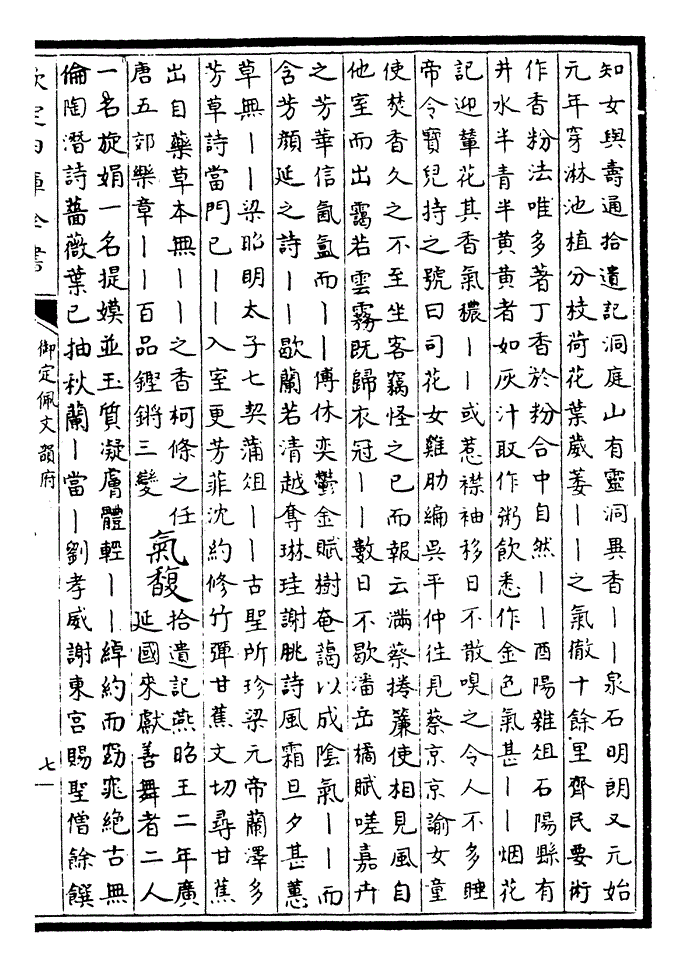 知女與壽通拾遺記洞庭山有靈洞異香丨丨泉石明朗又元始
元年穿淋池植分枝荷花葉葳萎丨丨之氣徹十餘里齊民要術
作香粉法唯多著丁香於粉合中自然丨丨酉陽雜俎石陽縣有
井水半青半黄黄者如灰汁取作粥飲悉作金色氣甚丨丨烟花
記迎輦花其香氣穠丨丨或惹襟袖移日不散嗅之令人不多睡
帝令寳兒持之號曰司花女雞肋編吳平仲往見蔡京京諭女童
使焚香久之不至坐客竊怪之已而報云滿蔡捲簾使相見風自
他室而出靄若雲霧既歸衣冠丨丨數日不歇潘岳橘賦嗟嘉卉
之芳華信氤氲而丨丨傅休奕鬱金賦樹奄藹以成陰氣丨丨而
含芳顔延之詩丨丨歇蘭若清越奪琳珪謝朓詩風霜旦夕甚蕙
草無丨丨梁昭明太子七契蒲俎丨丨古聖所珍梁元帝蘭澤多
芳草詩當門已丨丨入室更芳菲沈約修竹彈甘蕉文切尋甘蕉
出自藥草本無丨丨之香柯條之任
唐五郊樂章丨丨百品鏗鏘三變
氣馥
拾遺記燕昭王二年廣
延國來獻善舞者二人
一名旋娟一名提嫫並玉質凝膚體輕丨丨綽約而窈窕絶古無
倫陶潛詩薔薇葉已抽秋蘭丨當丨劉孝威謝東宮賜聖僧餘饌
欽定四庫全書
御定佩文韻府
七